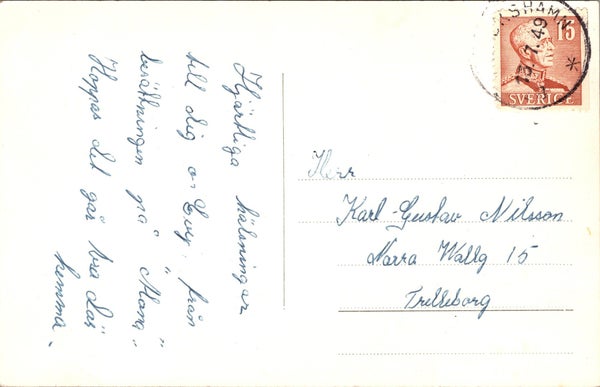 Hjärtliga hälsningar
till dig o. Evy, från
besättningen på "Mona"
Hoppas det går bra där
hemma.
KSHAMN
13.7.49
15
SVERIGE
Herr
Karl-Gustav Nilsson
Norra Wallg 15
Trelleborg